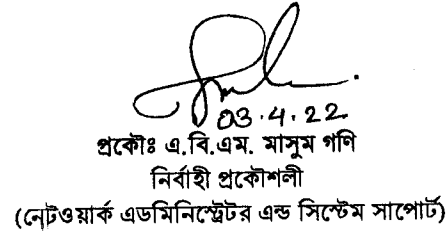 03.4.22
প্রকৌঃ এ.বি.এম. মাসুম গনি
নির্বাহী প্রকৌশলী
(নেটওয়ার্ক এডমিনিস্ট্রেটর এন্ড সিস্টেম সাপোর্ট)